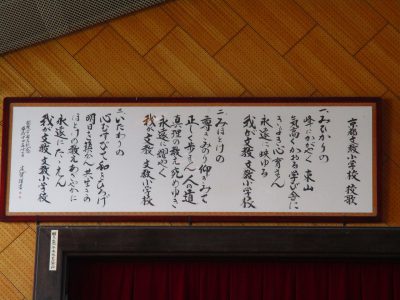 京都文教小学校 校歌
一、みひかりの
峰にかがやく 東山
気高くかおる 学び舎に
きよき心 育まん
永遠に映ゆる
我が文教 文教小学校
二、みほとけの
尊きみのり 仰ぎみて
正しく歩まん 人の道
真理の教え 究めゆき
永遠に燿やく
我が文教 文教小学校
三、いたわりの
心むすびて 和とひろげ
明日を築かん 共生きの
ほとけの教え あらやかに
永遠にたゝえん
我が文教 文教小学校